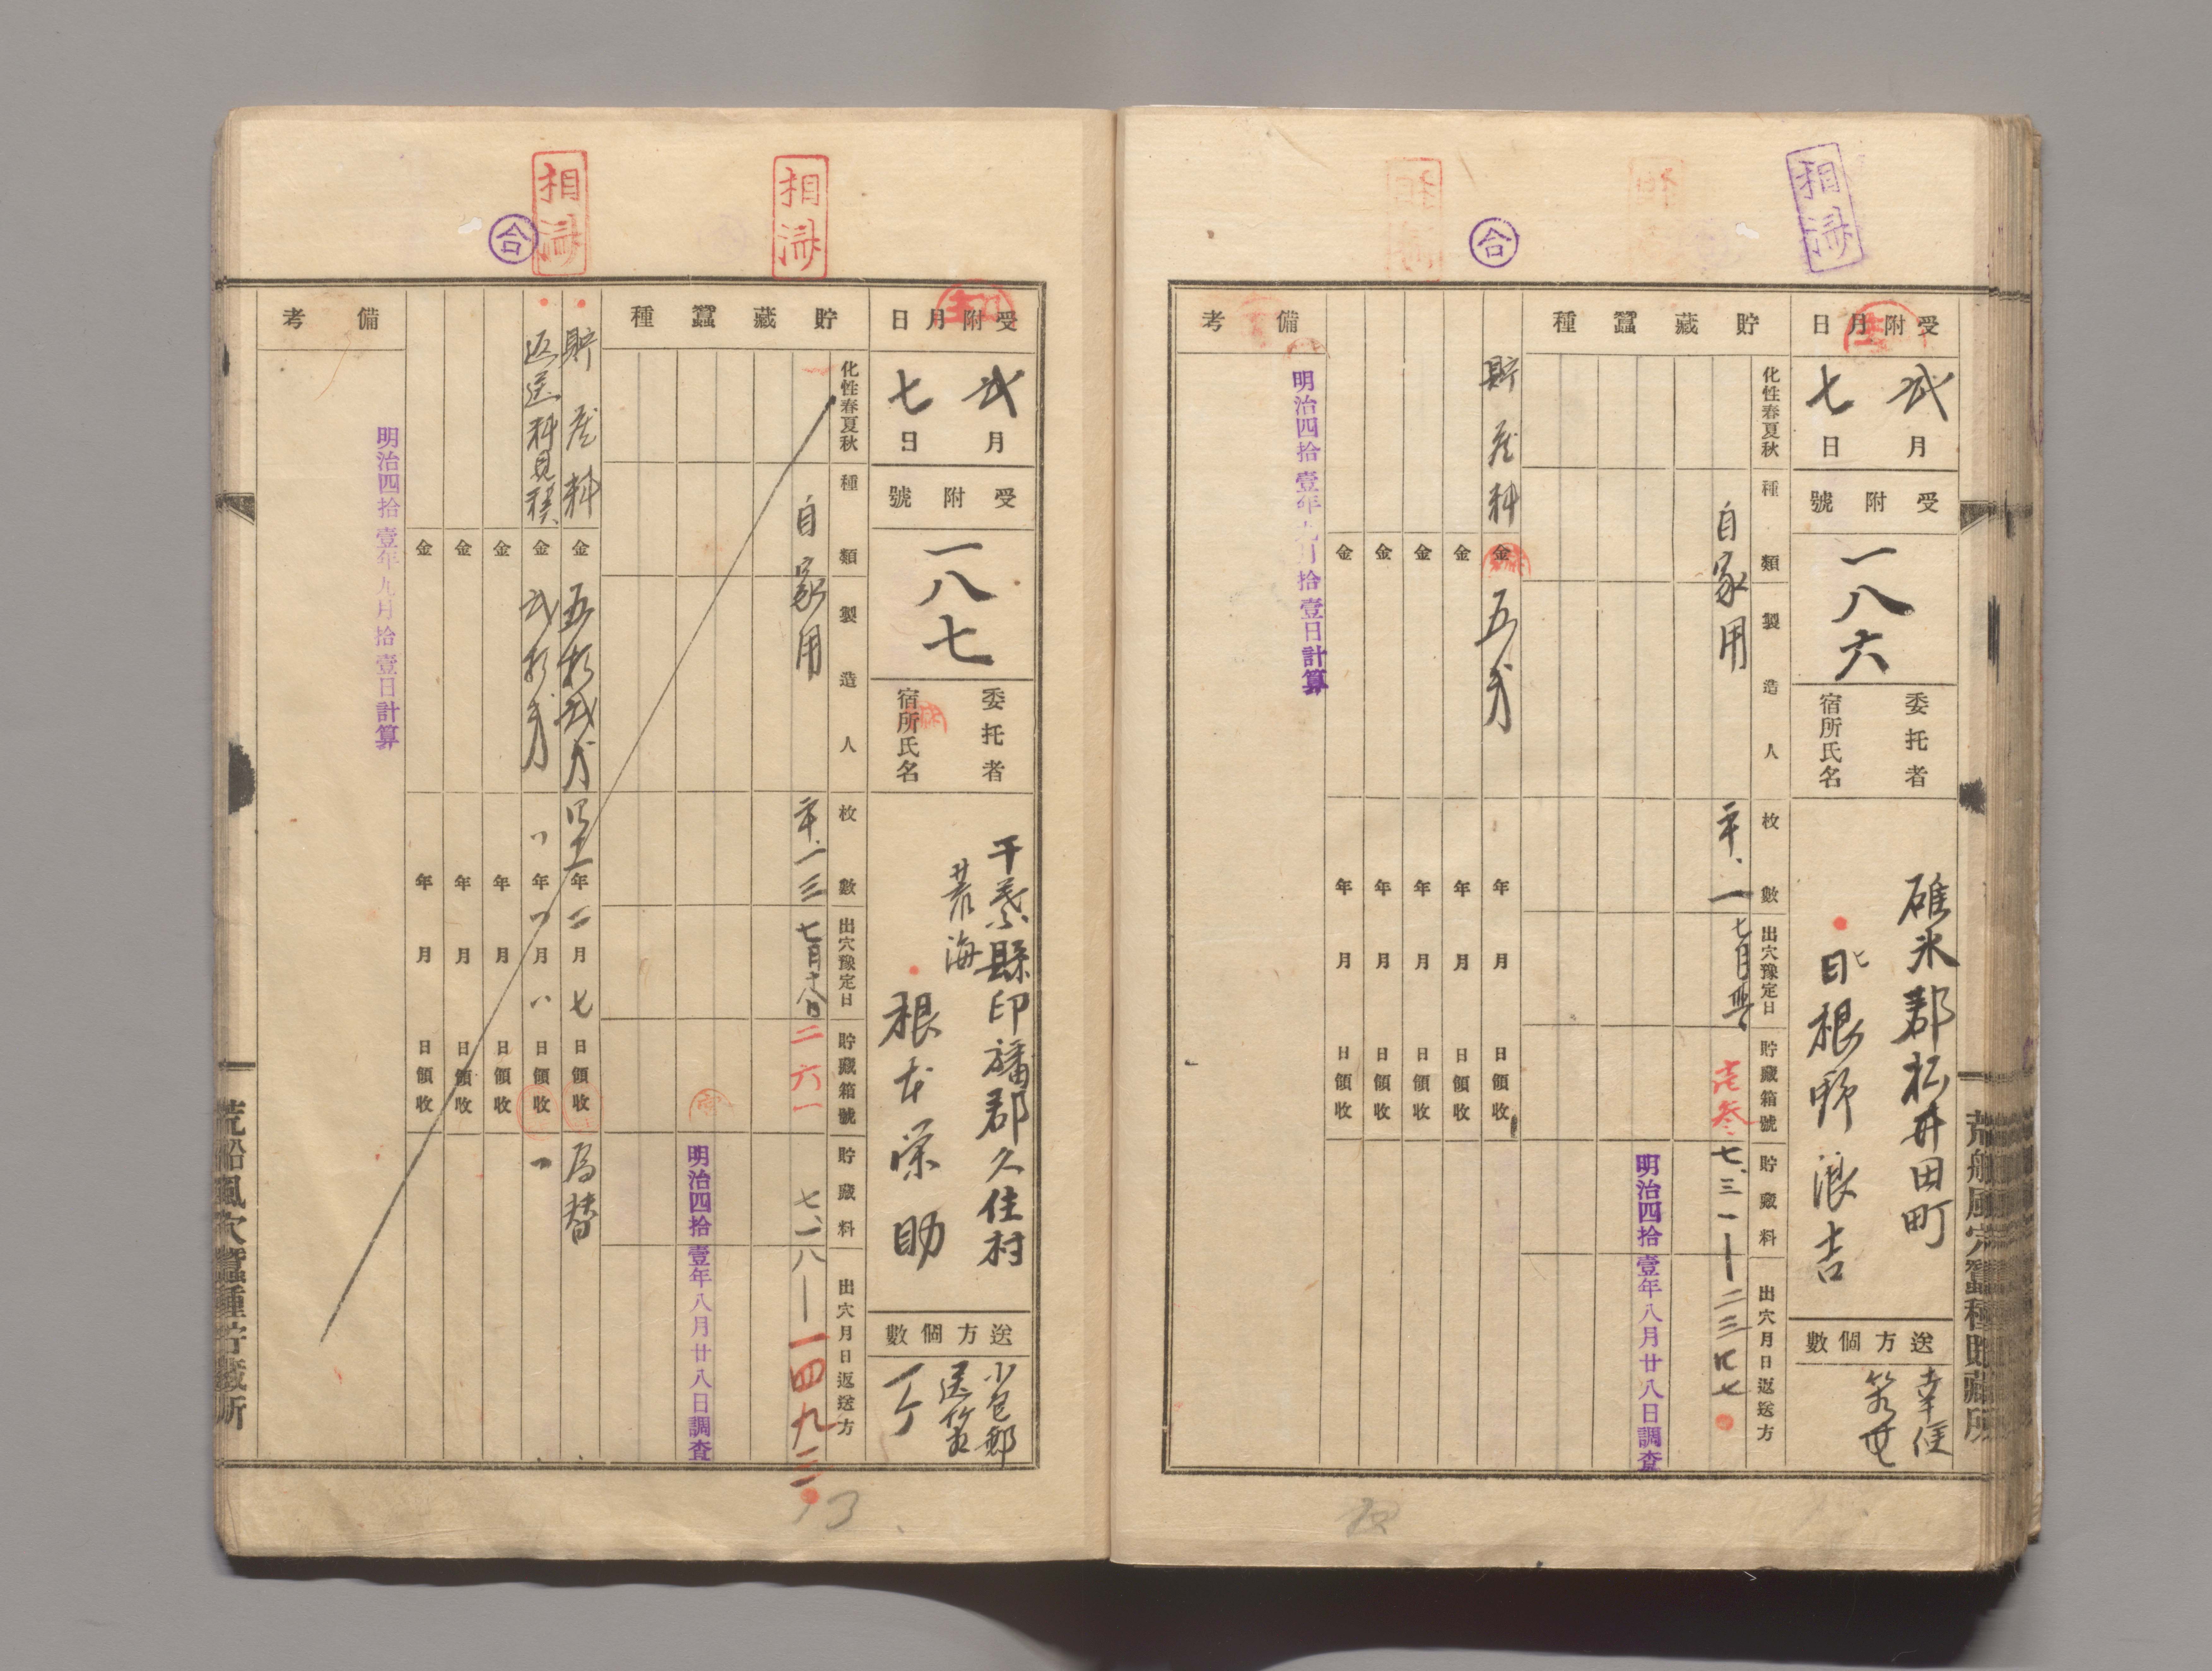 相済
合
受附月日
弐月
七日
受附號
一八六
委托者
宿所氏名
碓氷郡松井田町
日根野浪吉
送方個數
貯藏蠶種
化性春夏秋
種類
製造人
枚數
出穴豫定日
貯藏箱號
貯藏料
出穴月日返送方
自家用
平、一
七月
壱参
七、三一
明治四拾壹年八月廿八日調査
貯蔵料
金
五銭
年月日領收
金
年月日領收
金
年月日領收
金
年月日領收
金
年月日領收
明治四拾壹年九月拾壹日計算
備考
荒船風穴蠶種貯藏所
相済
相済
合
受附月日
弐月
七日
受附號
一八七
委托者
宿所氏名
千葉縣印旛郡久住村
荒海
根本栄助
送方個數
小包郵
一ケ
貯藏蠶種
化性春夏秋
種類
製造人
枚數
出穴豫定日
貯藏箱號
貯藏料
出穴月日返送方
自家用
平、一三
七月十八日
二六一
七、一八
一四九三
明治四拾壹年八月廿八日調査
貯蔵料
金
五拾弐銭
四十一年二月七日領收
為替
返送料見積
金
弐拾銭
年月日領收
金
年月日領收
金
年月日領收
金
年月日領收
明治四拾壹年九月拾壹日計算
備考
荒船風穴蠶種貯藏所